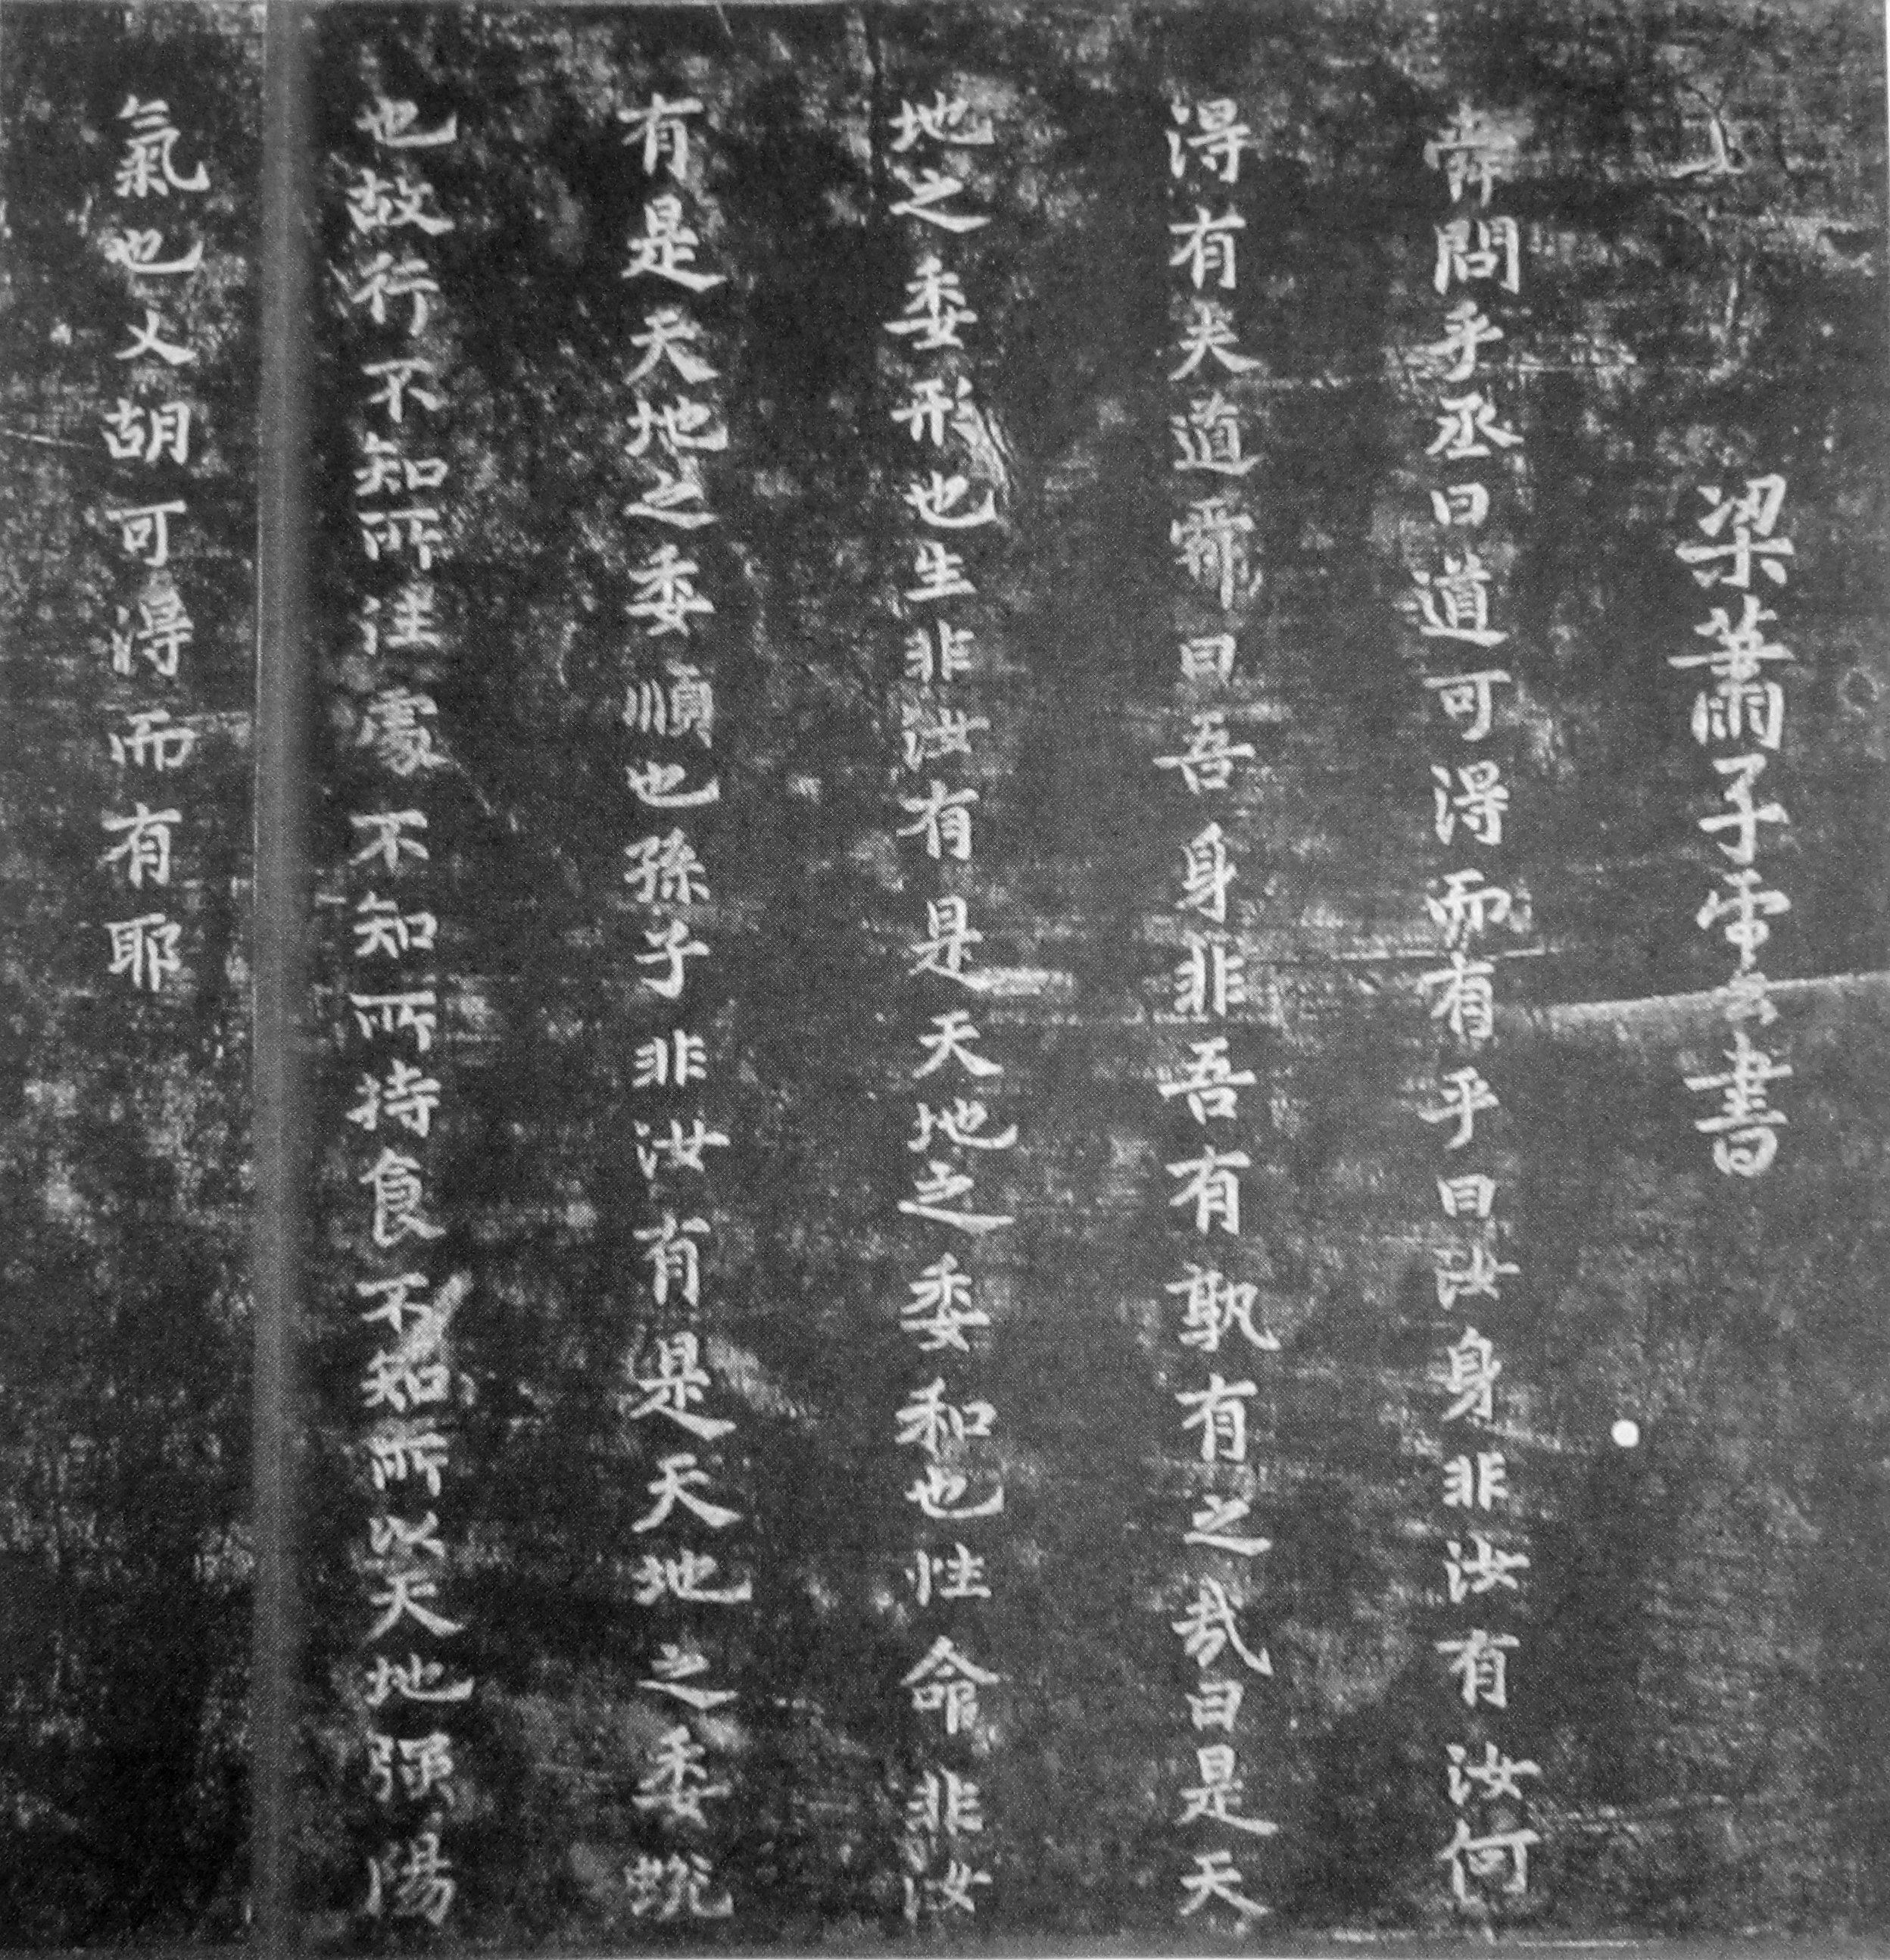 梁蕭子雲書
舜問乎丞曰道可得而有乎曰汝身非汝有汝何
得有夫道舜曰吾身非吾有孰有之哉曰是天
地之委形也生非汝有是天地之委和也性命非汝
有是天地之委順也孫子非汝有是天地之委蛻
也故行不知所往處不知所持食不知所以天地强陽
氣也又胡可得而有耶